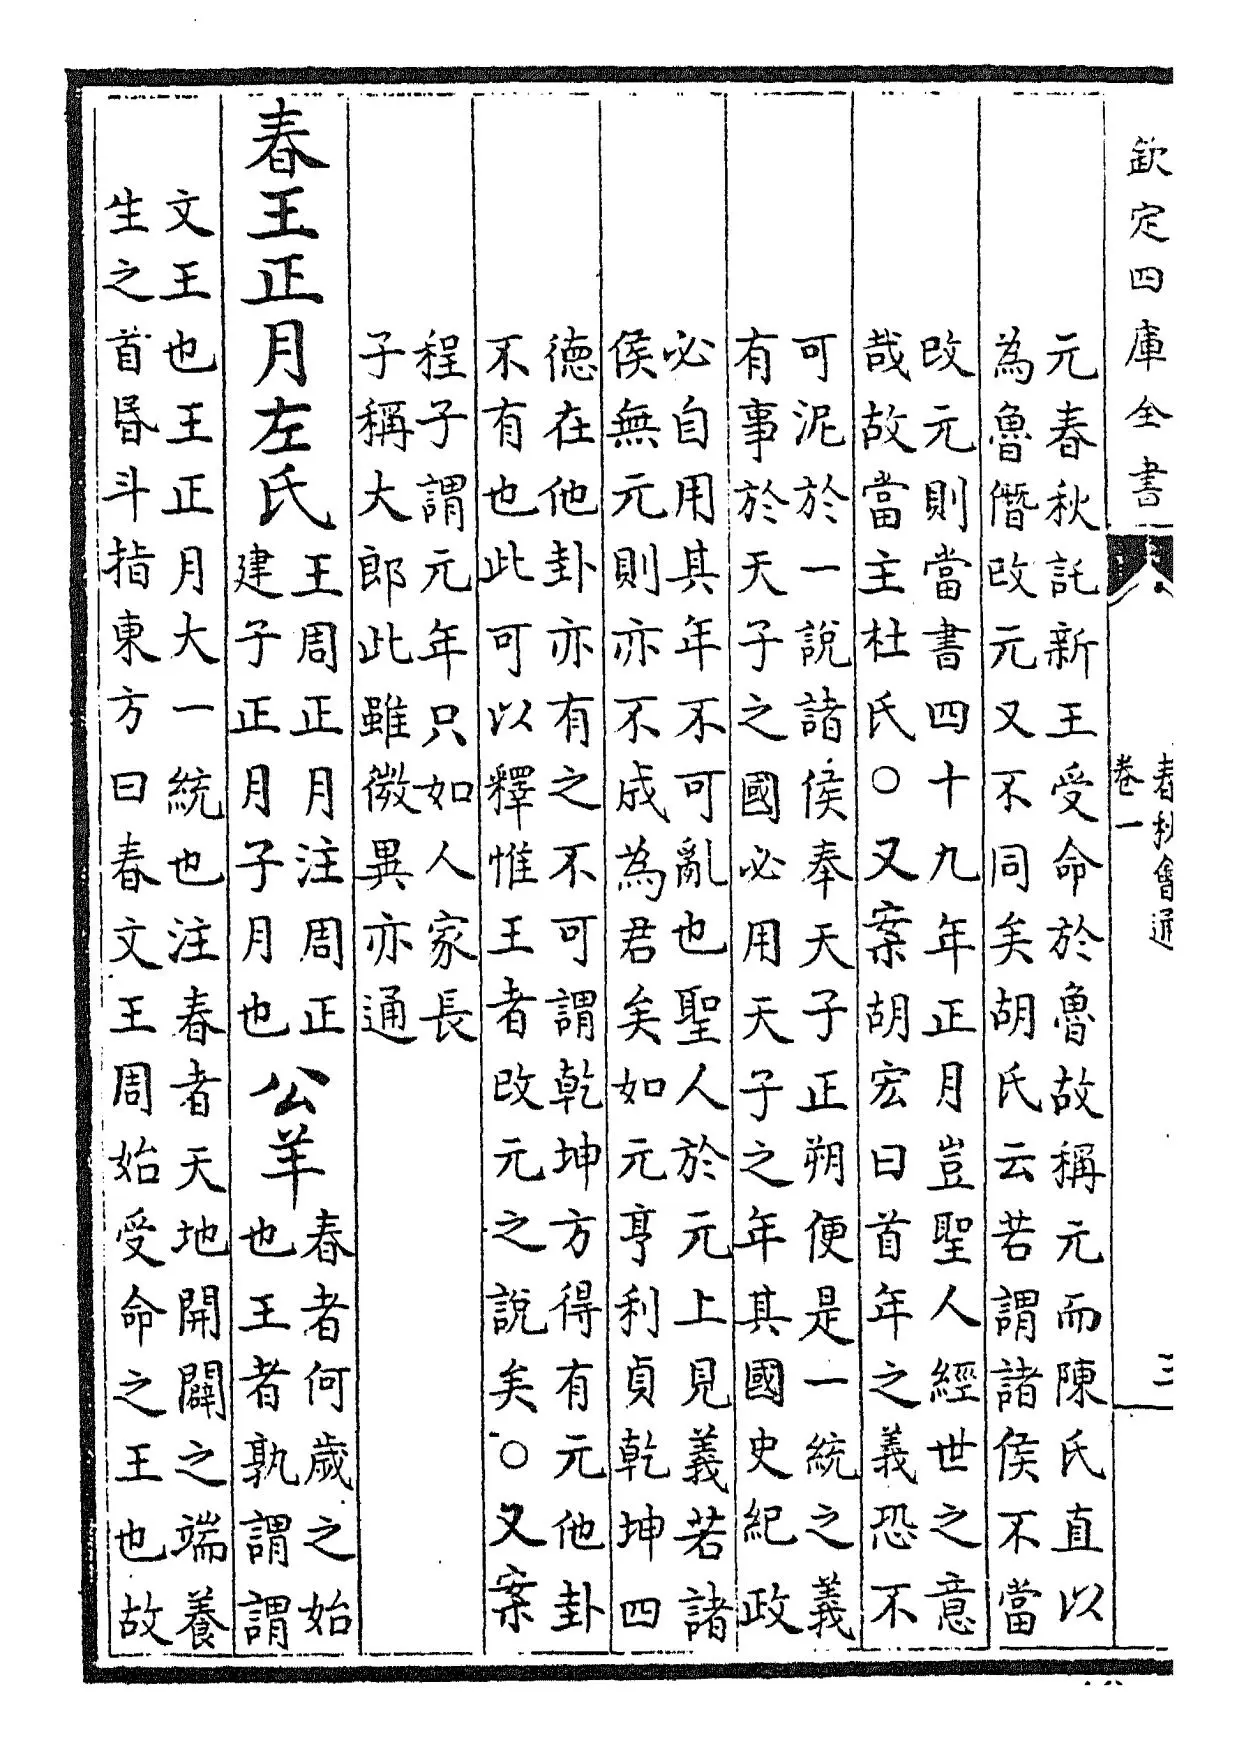 欽定四庫全書
春秋會通
卷一
三
元春秋託新王受命於魯故稱元而陳氏直以
為魯僭改元又不同矣胡氏云若謂諸侯不當
改元則當書四十九年正月豈聖人經世之意
哉故當主杜氏○又案胡宏曰首年之義恐不
可泥於一說諸侯奉天子正朔便是一統之義
有事於天子之國必用天子之年其國史紀政
必自用其年不可亂也聖人於元上見義若諸
侯無元則亦不成為君矣如元亨利貞乾坤四
德在他卦亦有之不可謂乾坤方得有元他卦
不有也此可以釋惟王者改元之說矣○又案
程子謂元年只如人家長
子稱大郎此雖微異亦通
春王正月左氏
王周正月注周正
建子正月子月也
公羊
春者何歲之始
也王者孰謂謂
文王也王正月大一統也注春者天地開闢之端養
生之首昏斗指東方曰春文王周始受命之王也故